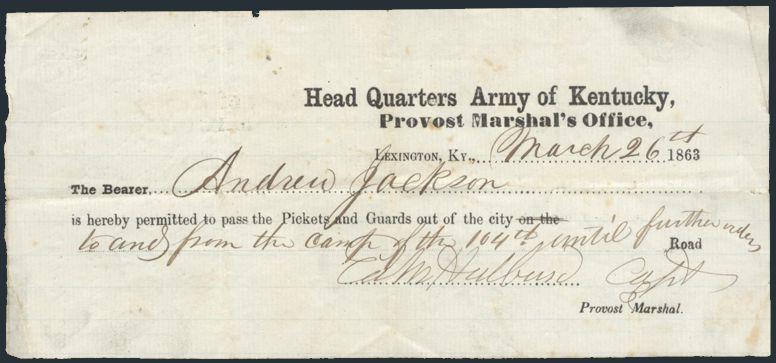 Head Quarters Army of Kentucky,
Provost Marshal's Office,
Lexington, Ky., March 26th 1863
The Bearer, Andrew Jackson
is hereby permitted to pass the Pickets and Guards out of the city on the
to and from the camp of the 104th until further orders Road
Capt
Provost Marshal.